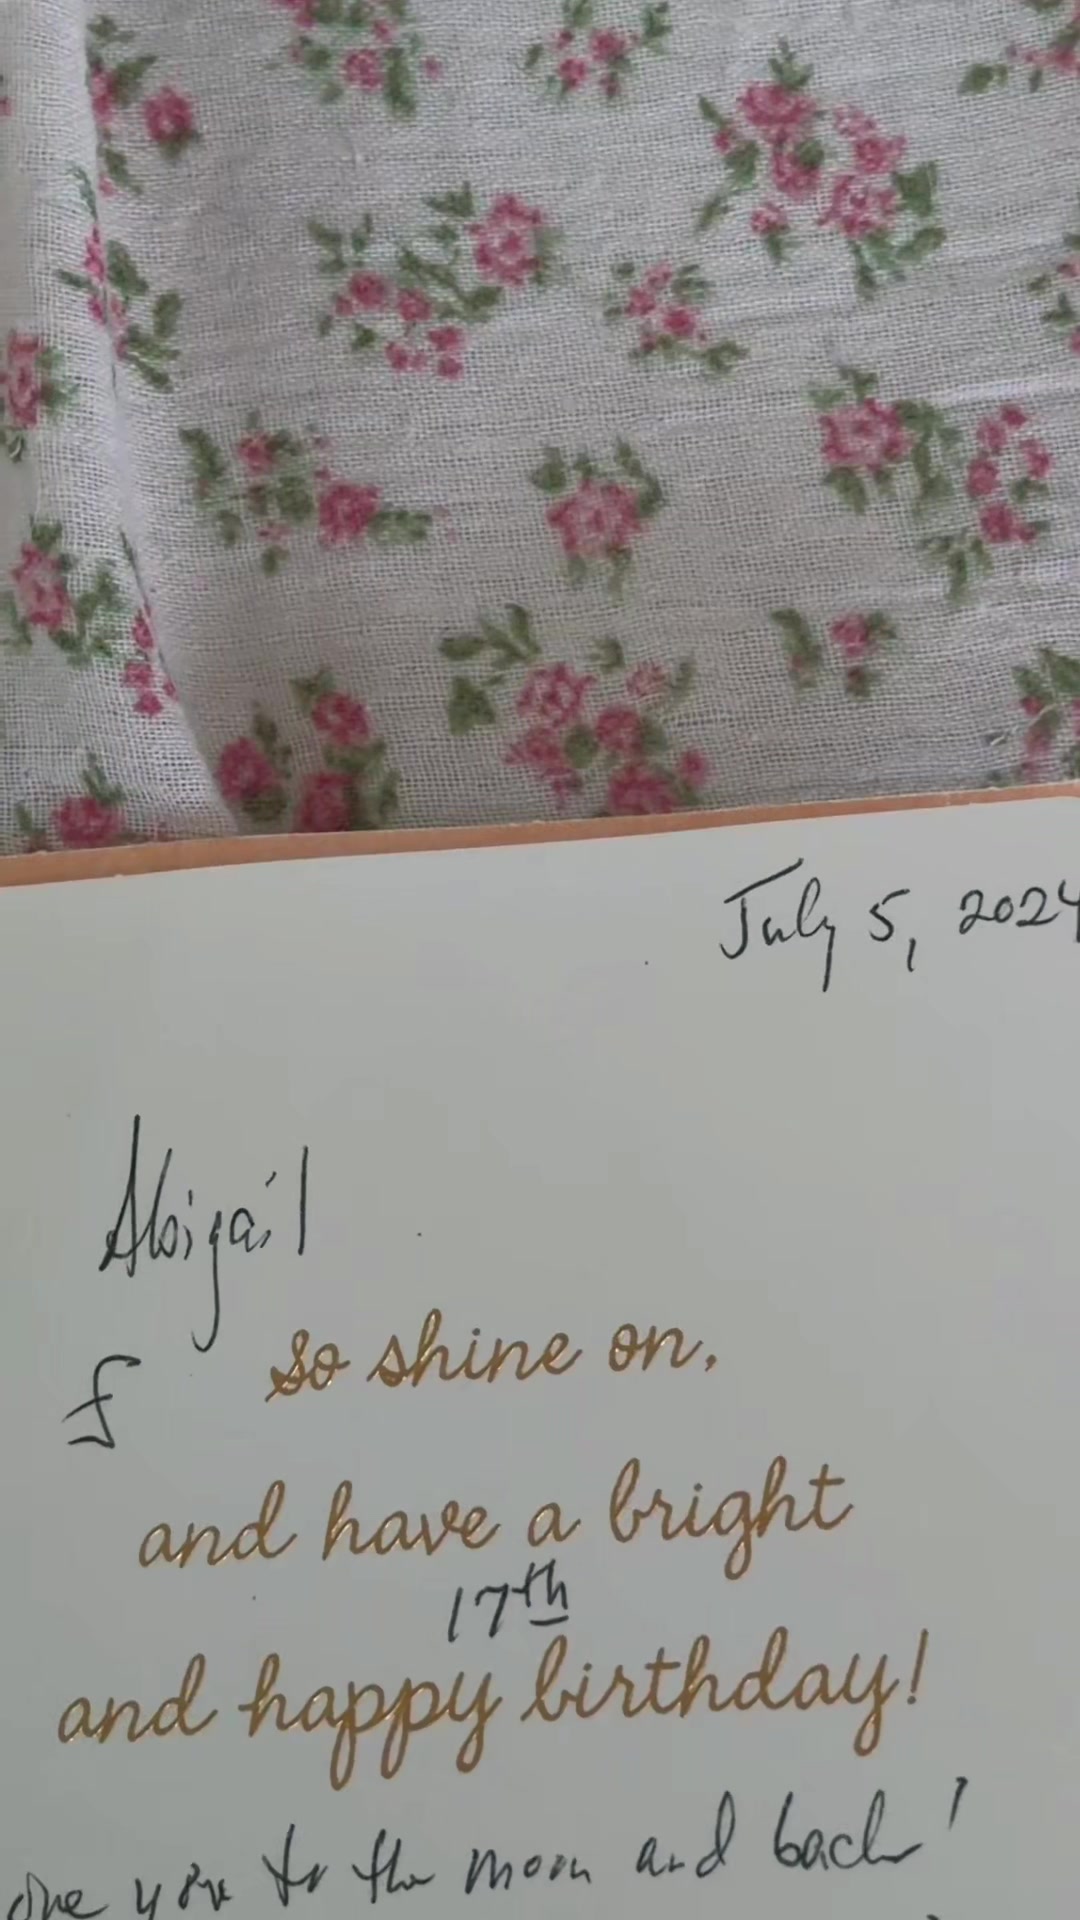 July 5, 2024
Abigail
so shine on,
and have a bright
17th
and happy birthday!
you to the moon and back!